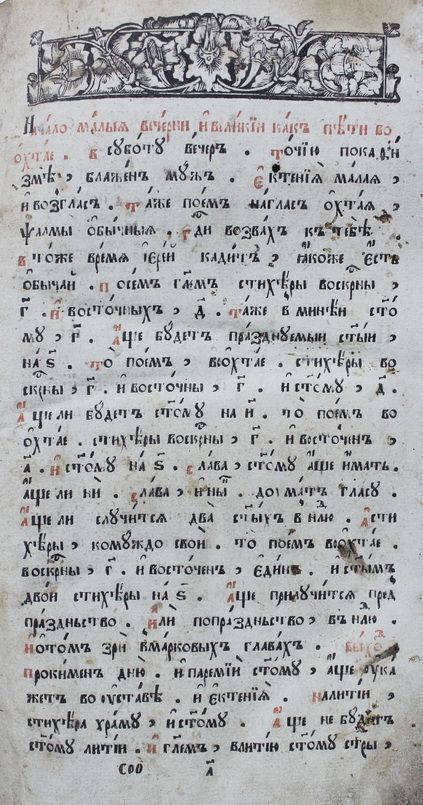 Нача́ло ма́лыѧ вече́рни и҆ вели́кїи ка́кѡ пѣ́ти во
ѻ҆хта́е . в суббо́тꙋ ве́черъ . то́чїю пока
ѱмѣ̀ , блаже́нъ мꙋ́жъ . Є҆ктенїѧ̀ ма́лаѧ ,
и во́згласъ . та́же пое́мъ на гла́съ ѻ҆хта́ѧ ,
ѱалмы̀ ѻ҆бы́чныѧ , гдⷭ҇и возва́хъ къ тебѣ̀ .
в то́же вре́мѧ і҆ере́й кади́тъ , ꙗ҆́коже є҆́сть
ѻ҆бы́чай . посе́мъ гл҃емъ стихѣ́ры воскрⷭ҇ны ,
г҃ . и҆ восто́чныхъ , д҃ . та́же в мине́и ст҃о
мꙋ , г҃ . а҆́ще бꙋ́детъ пра́зднꙋемый ст҃ы́и ,
на ѕ҃ . то̀ пое́мъ , во ѻ҆хта́е . стихѣ́ры во
скрⷭ҇ны , г҃ . и҆ восто́чны , г҃ . и҆ ст҃о́мꙋ , д҃ .
а҆́ще ли бꙋ́детъ ст҃о́мꙋ на и҃ . то̀ пое́мъ во
ѻ҆хта́е . стихѣ́ры воскрⷭ҇ны , г҃ . и҆ восто́ченъ ,
а҃ . и҆ ст҃о́мꙋ на ѕ҃ . сла́ва , ст҃о́мꙋ а҆́ще и҆́мать .
а҆́ще ли нѝ . сла́ва , и҆ ны́нѣ . до́гматъ гла́сꙋ .
а҆́ще ли слꙋчи́тсѧ два̀ ст҃ы́хъ в не́лю . а҆ сти
хѣ́ры , комꙋ́ждо своѝ . то̀ пое́мъ во ѻ҆хта́е .
воскрⷭ҇ны , г҃ . и҆ восто́ченъ , є҆ди́нъ . и҆ ст҃ы́мъ
двои̑ стихѣ́ры на ѕ҃ . а҆́ще прилꙋчи́тсѧ пред
пра́здньство . и҆лѝ попра́здньство , в не́лю .
и҆ то́мъ зрѝ в ма́рковыхъ глава́хъ . вы́хѡд
проки́менъ дню̀ . и҆ паремїѝ ст҃о́мꙋ , а҆́ще ᲂу҆ка
жетъ во ᲂу҆ста́вѣ . и҆ є҆ктенїѧ̀ . на литїѝ ,
стихѣ́ра хра́мꙋ , и҆ ст҃о́мꙋ . а҆́ще не бꙋ́детъ
ст҃о́мꙋ литїѝ . и҆ гл҃емъ , в литїю̀ ст҃о́мꙋ
а҃